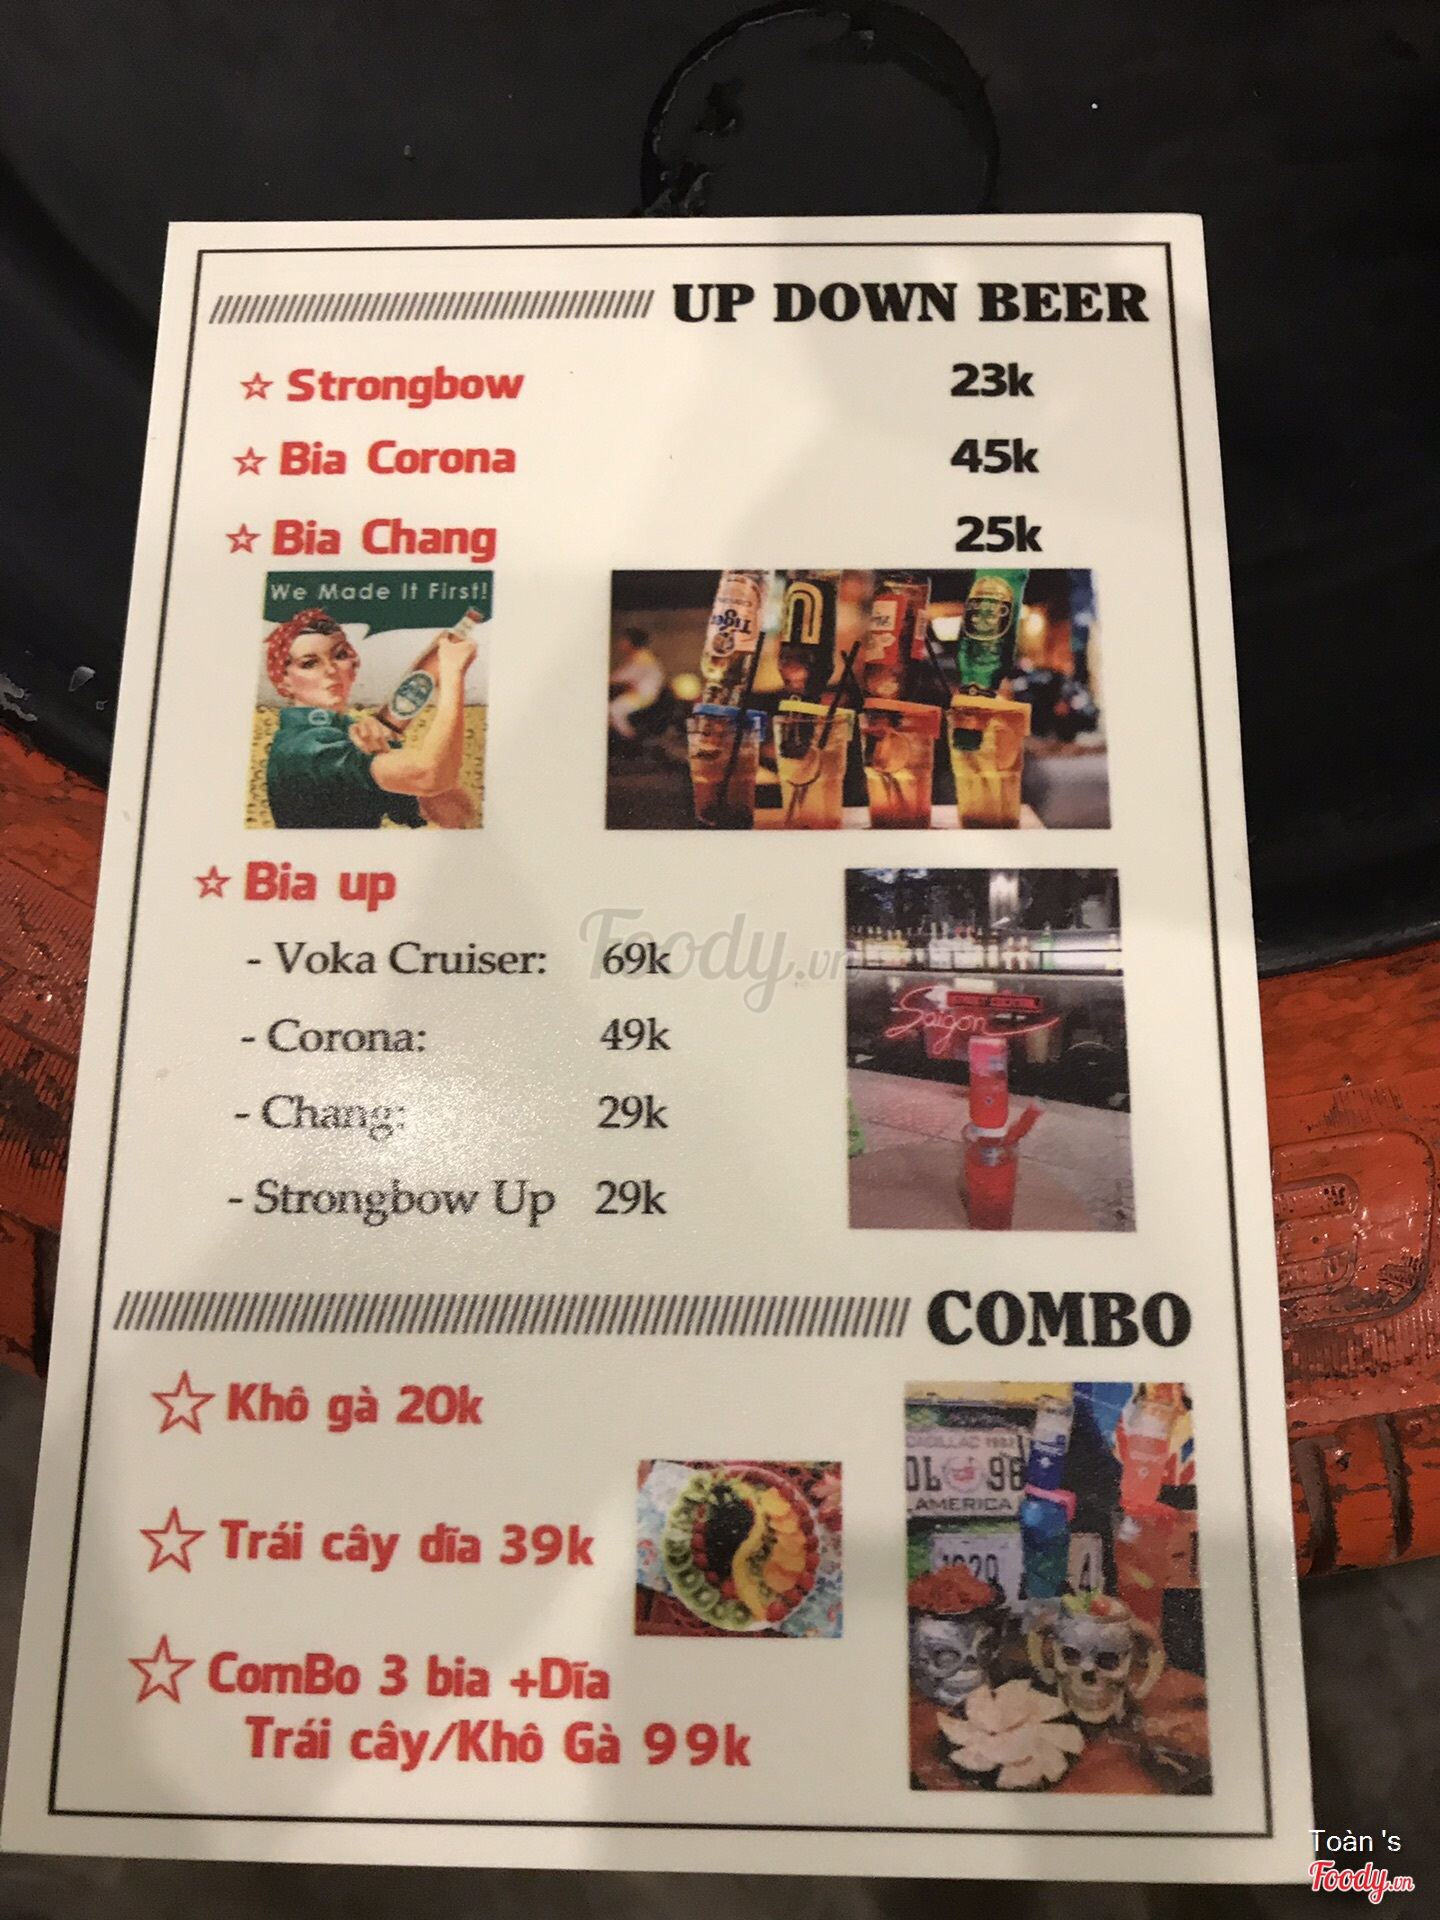 UP DOWN BEER
Strongbow 23k
Bia Corona 45k
Bia Chang 25k
We Made It First!
Tiger
Bia up
- Voka Cruiser: 69k
- Corona: 49k
- Chang: 29k
- Strongbow Up 29k
Foody.vn
STREET COCKTAIL
Saigon
COMBO
Khô gà 20k
Trái cây đĩa 39k
ComBo 3 bia +Dĩa
Trái cây/Khô Gà 99k
CADILLAC
DL 98
AMERICA
1929
4
Toàn 's
Foody.vn